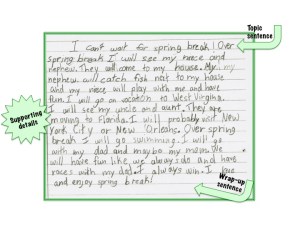 Topic sentence
I can't wait for spring break! Over
spring break I will see my niece and
nephew. They will come to my house. My
nephew will catch fish next to my house
and my niece will play with me and have
fun. I will go on vacation to West Virgina.
I will see my uncle and aunt. They are
moving to Florida. I will probably visit New
York City or New Orleans. Over spring
break I will go swimming. I will go
with my dad and maybe my mom. We
will have fun like we always do and have
races with my dad. I always win. I love
and enjoy spring break!
Supporting details
Wrap-up sentence